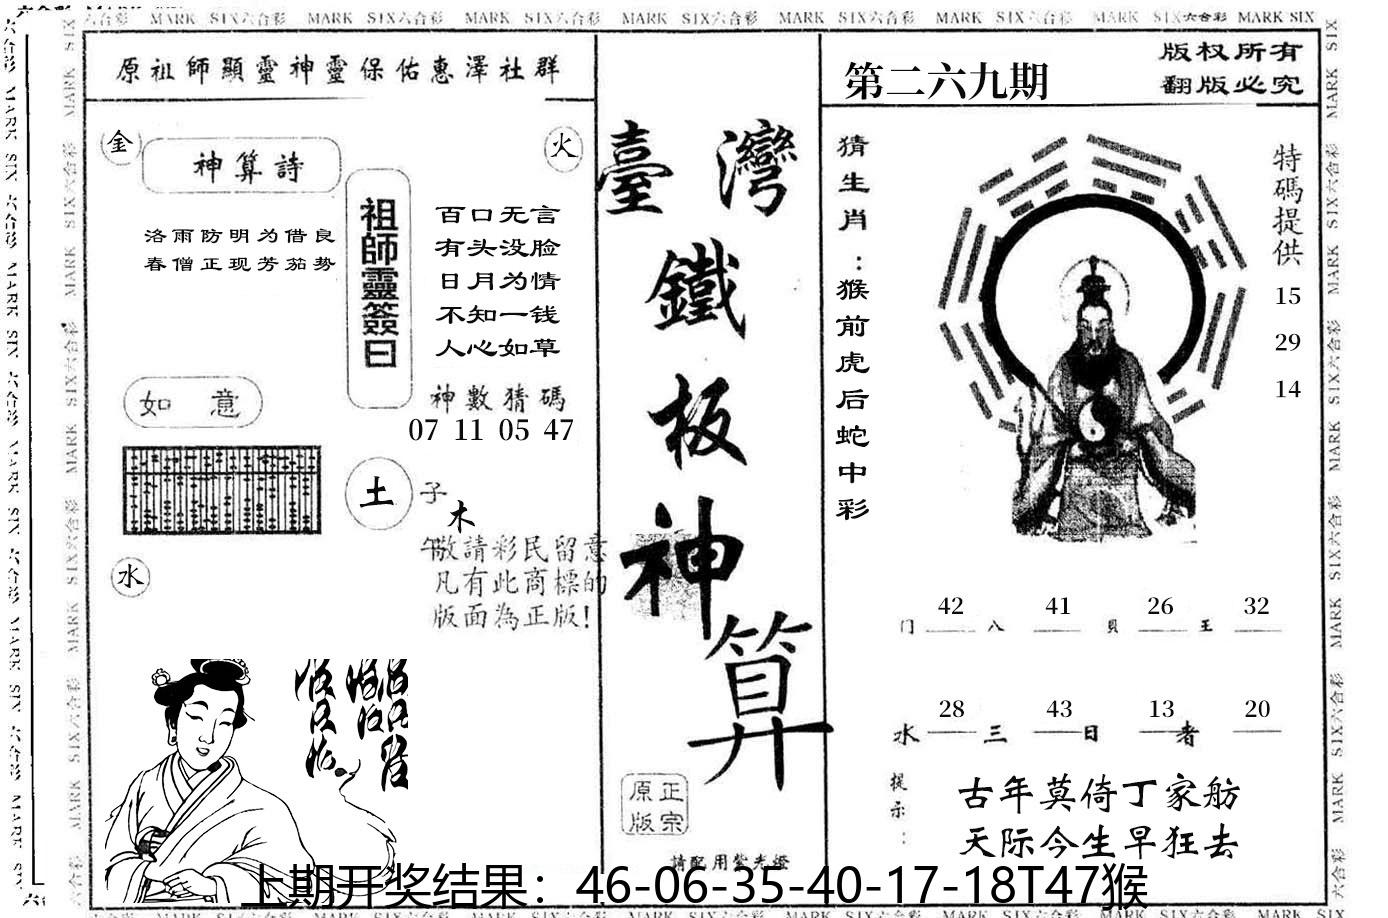 MARK SIX六合彩 MARK SIX六合彩 MARK SIX六合彩 MARK SIX六合彩 MARK SIX六合彩 MARK SIX六合彩 MARK SIX六合彩 MARK SIX
原祖師顯靈神靈保佑惠澤社群
金
火
神算詩
洛雨防明为借良
春僧正现芳茄势
祖師靈簽曰
百口无言
有头没脸
日月为情
不知一钱
人心如草
神數猜碼
07 11 05 47
如意
土
子
木
午
水
敬請彩民留意
凡有此商標的
版面為正版!
臺灣
鐵
板
神
算
原正
版宗
請配用紫光燈
第二六九期
版权所有
翻版必究
猜生肖：猴前虎后蛇中彩
特碼提供
15
29
14
42 41 26 32
门 八 貝 王
28 43 13 20
水 三 日 者
提示：
古年莫倚丁家舫
天际今生早狂去
上期开奖结果：46-06-35-40-17-18T47猴